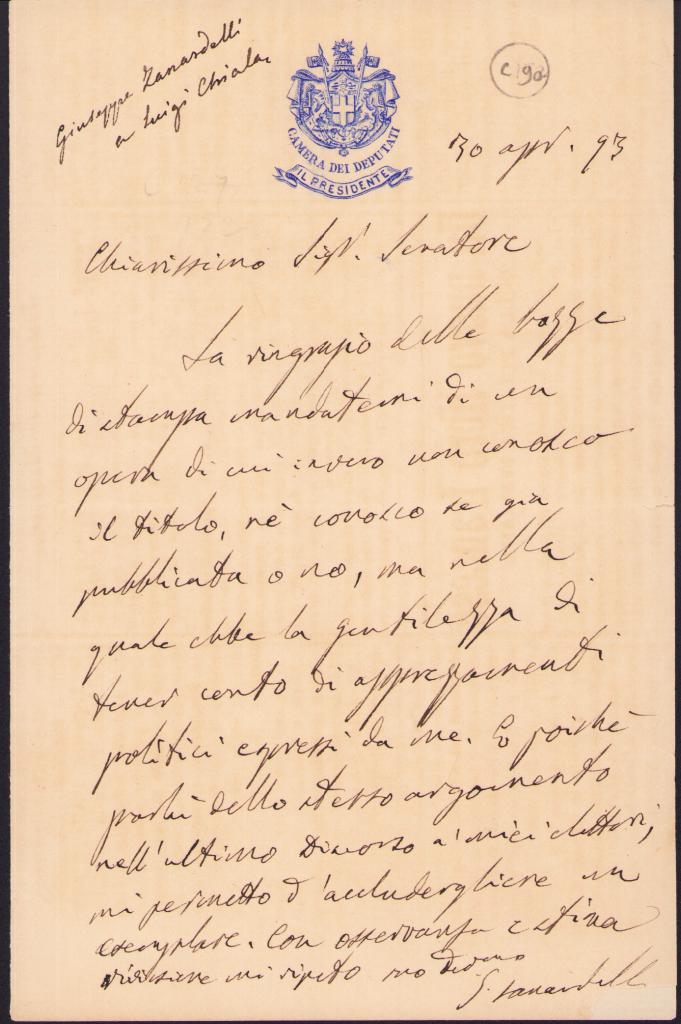 Giuseppe Zanardelli
a Luigi Chiala
c 190
CAMERA DEI DEPUTATI
IL PRESIDENTE
30 apr. 93
Chiarissimo Sigr. Senatore
La ringrazio delle bozze
di stampa mandatemi di un
opera di cui invero non conosco
il titolo, nè conosco se già
pubblicata o no, ma nella
quale ebbe la gentilezza di
tener conto di apprezzamenti
politici espressi da me. E poichè
parlai dello stesso argomento
nell'ultimo discorso a' miei elettori,
mi permetto d'accludergliene un
esemplare. Con osservanza e stima
mi ripeto suo devmo
G. Zanardelli